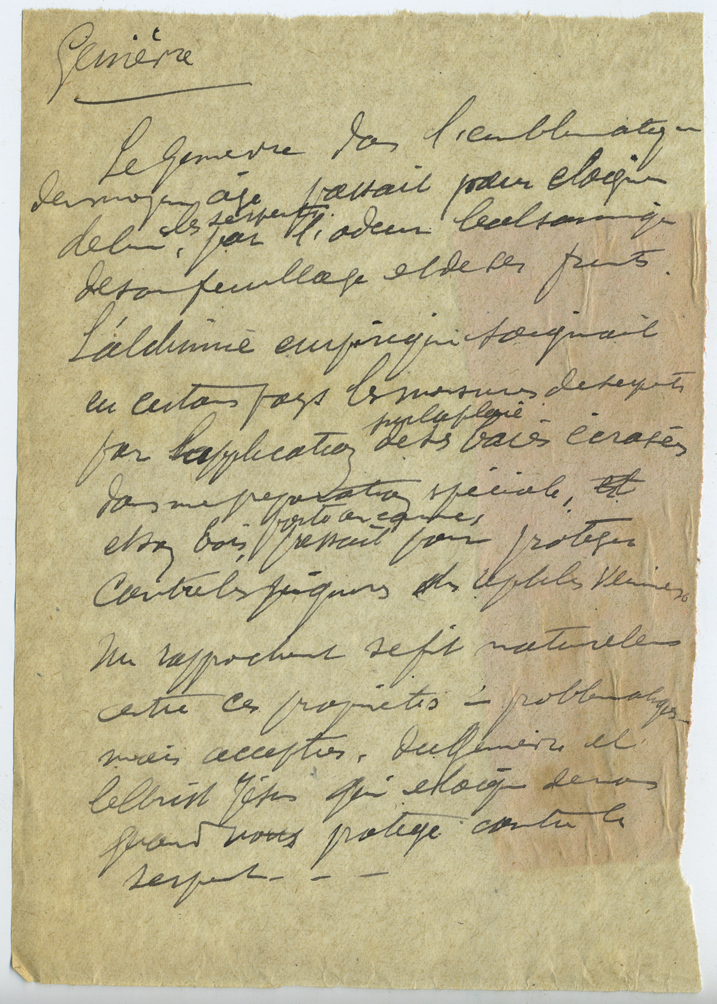 Genièvre
Le Genievre dans l'emblematique
du moyen âge passait pour eloigner
les serpents
de lui, par l'odeur balsamique
de son feuillage et de ses fruits.
L'alchimie empirique soignait
en certains pays les morsures de serpents
sur la plaie
par l'application de ses baies écrasées
dans une preparation spéciale, et
et son bois, passait pour proteger
contre les piqures des reptiles venimeux
Un rapprochement se fit naturellement
entre ces propriétés - problematiques
mais acceptées, du Genievre et
le Christ Jésus qui eloigne de nous
quand vous protège contre le
serpent - - -